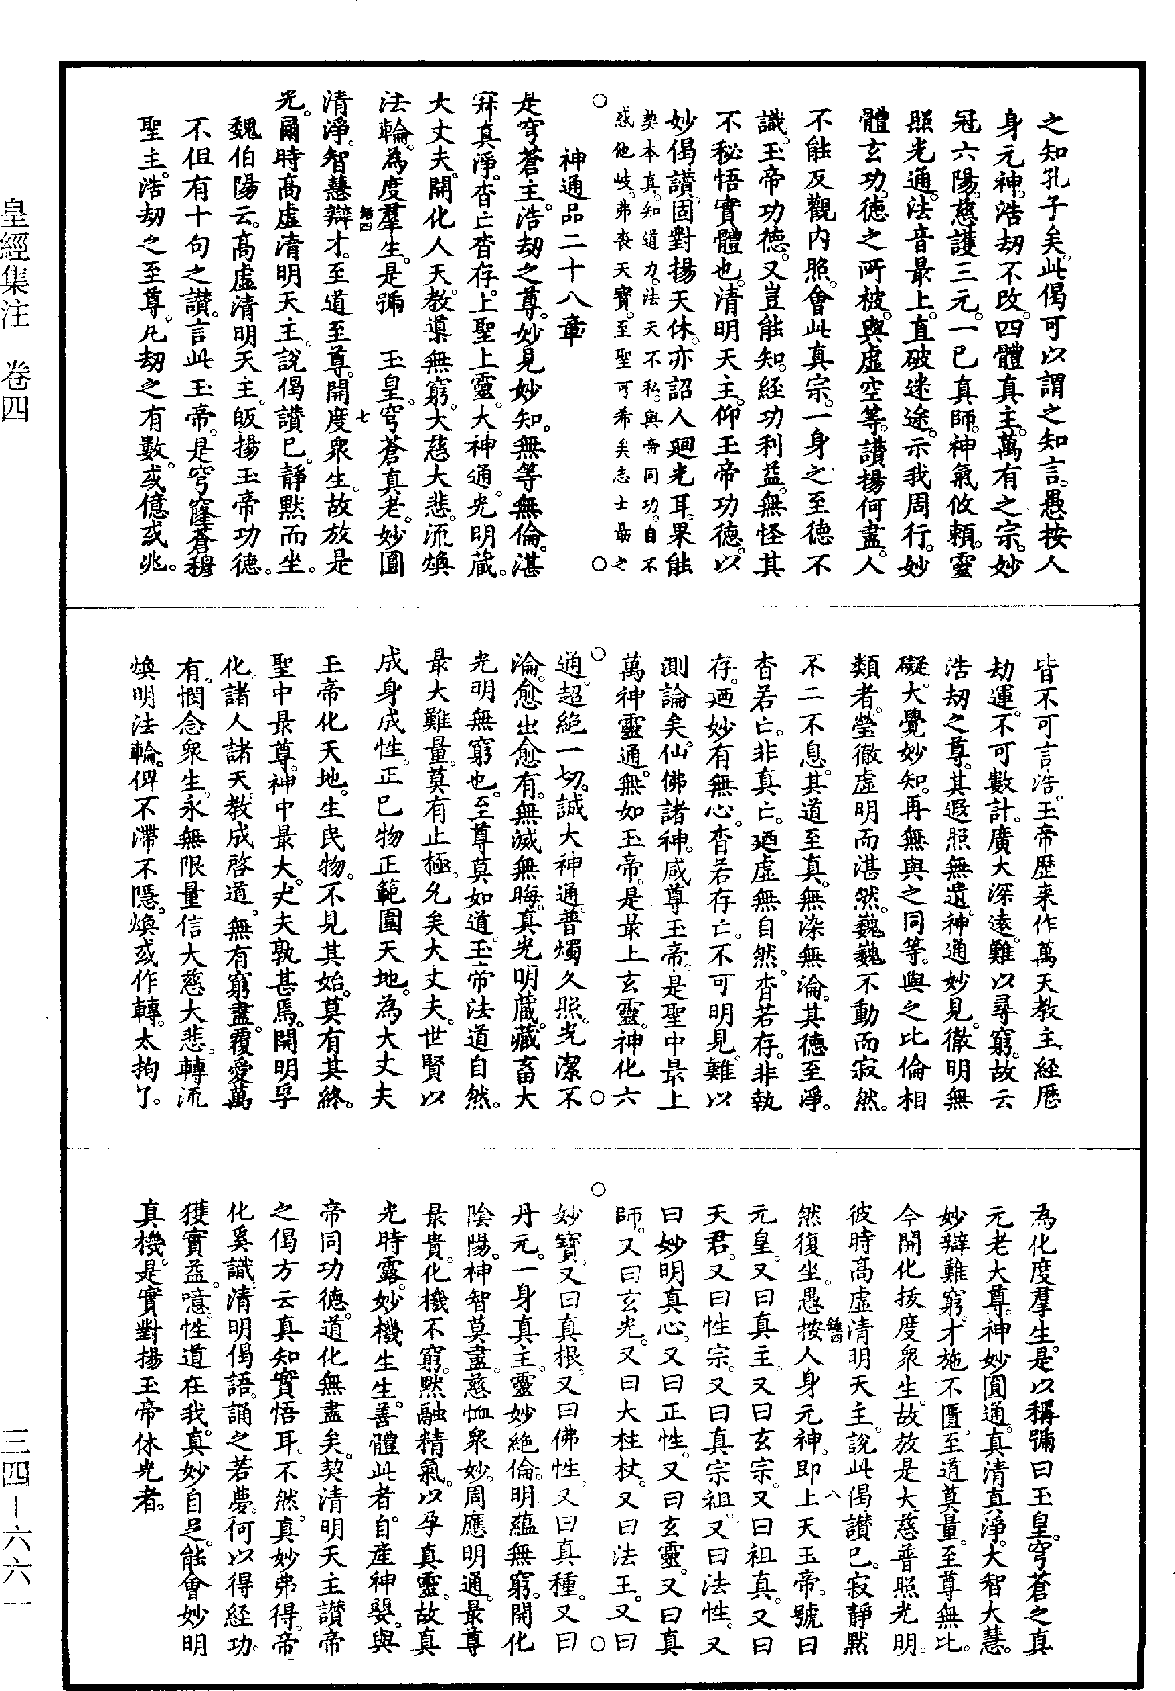 皇經集注　卷四
三四—六六一
之知孔子矣。此偈可以謂之知言。愚按人
身元神。浩劫不改。四體真主。萬有之宗。妙
冠六陽。慈護三元。一巳真師。神氣攸賴。靈
照光通。法音最上。直破迷途。示我周行。妙
體玄功。德之所被。與虛空等。讚揚何盡。人
不能反觀內照。會此真宗。一身之至德不
識。玉帝功德。又豈能知。經功利益。無怪其
不秘悟實體也。清明天主。仰玉帝功德。以
妙偈讚。固對揚天休。亦詔人廻光耳。果能
契本真。知道力。法天不私。與帝同功。自不
惑他岐。弗喪天寶。至聖可希矣。志士勗之
○　○
神通品二十八章
是穹蒼主。浩劫之尊。妙見妙知。無等無倫。湛
寂真淨。杳亡杳存。上聖上靈。大神通。光明藏。
大丈夫。開化人天。教導無窮。大慈大悲。流煥
法輪。為度羣生。是號　玉皇。穹蒼真老。妙圓
清淨。智慧辯才。至道至尊。開度衆生。故放是
光。爾時高虛清明天主。說偈讚巳。靜默而坐。
魏伯陽云。高虛清明天主。皈揚玉帝功德。
不但有十句之讚。言此玉帝。是穹窿蒼穆
聖主。浩劫之至尊。凡劫之有數。或億或兆。
皆不可言浩。玉帝歷来作萬天教主。經歷
劫運。不可數計。廣大深遠。難以尋窮。故云
浩劫之尊。其遐照無遺。神通妙見。徹明無
礙。大覺妙知。再無與之同等。與之比倫相
類者。瑩徹虛明而湛然。巍巍不動而寂然。
不二不息。其道至真。無染無淪。其德至淨。
杳若亡。非真亡。廼虛無自然。杳若存。非執
存。廼妙有無心。杳若存亡。不可明見。難以
測論矣。仙佛諸神。咸尊玉帝。是聖中最上
萬神靈通。無如玉帝。是最上玄靈。神化六
○　○
通。超絕一切。誠大神通。普燭久照。光潔不
淪。愈出愈有。無滅無晦。真光明藏。藏畜大
光明無窮也。至尊莫如道。玉帝法道自然。
最大難量。莫有止極。允矣大丈夫。世賢以
成身成性。正巳物正。範圍天地。為大丈夫
玉帝化天地。生民物。不見其始。莫有其終。
聖中最尊。神中最大。丈夫孰甚焉。開明孚
化。諸人諸天。教成啓道。無有窮盡。覆愛萬
有。憫念衆生。永無限量。信大慈大悲。轉流
煥明法輪。俾不滯不隱。煥或作轉。太拘了。
為化度羣生。是以稱號曰玉皇。穹蒼之真
元老大尊。神妙圓通。真清真淨。大智大慧。
妙辯難窮。才施不匱。至道莫量。至尊無比。
今開化拔度衆生。故放是大慈普照光明。
彼時高虛清明天主。說此偈讚巳。寂靜默
然復坐。愚按人身元神。即上天玉帝。號曰
元皇。又曰真主。又曰玄宗。又曰祖真。又曰
天君。又曰性宗。又曰真宗祖。又曰法性。又
曰妙明真心。又曰正性。又曰玄靈。又曰真
師。又曰玄光。又曰大柱杖。又曰法王。又曰
○　○
妙寶。又曰真根。又曰佛性。又曰真種。又曰
丹元。一身真主。靈妙絕倫。明蘊無窮。開化
陰陽。神智莫盡。慈恤衆妙。周應明通。最尊
最貴。化機不窮。默融精氣。以孕真靈。故真
光時露。妙機生生。善體此者。自產神嬰。與
帝同功德。道化無盡矣。契清明天主讚帝
之偈。方云真知實悟耳。不然。真妙弗得。帝
化奚識。清明偈語。誦之若夢。何以得經功
獲實益。噫。性道在我。真妙自足。能會妙明
真機。是實對揚玉帝休光者。